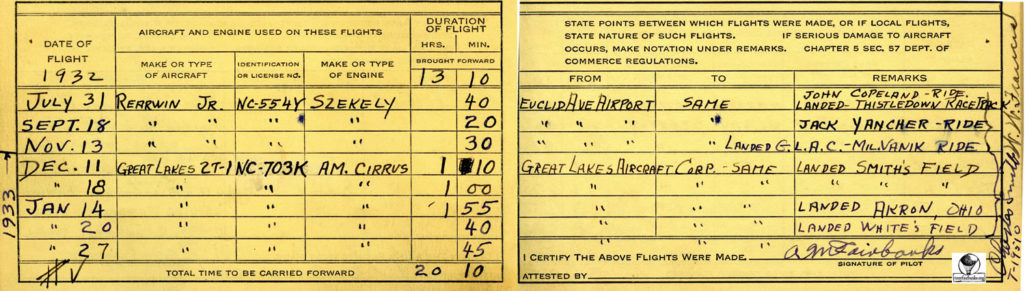 DATE OF FLIGHT
1932
AIRCRAFT AND ENGINE USED ON THESE FLIGHTS
DURATION OF FLIGHT
HRS. MIN.
MAKE OR TYPE OF AIRCRAFT
IDENTIFICATION OR LICENSE NO.
MAKE OR TYPE OF ENGINE
BROUGHT FORWARD
13 10
JULY 31 REARWIN JR. NC-554Y SZEKELY 40
SEPT. 18 " " " " 20
NOV. 13 " " " " 30
DEC. 11 GREAT LAKES 2T-1 NC-703K AM. CIRRUS 1 10
" 18 " " " " 1 00
1933
JAN 14 " " " " 1 55
" 20 " " " " 40
" 27 " " " " 45
TOTAL TIME TO BE CARRIED FORWARD 20 10
STATE POINTS BETWEEN WHICH FLIGHTS WERE MADE, OR IF LOCAL FLIGHTS,
STATE NATURE OF SUCH FLIGHTS. IF SERIOUS DAMAGE TO AIRCRAFT
OCCURS, MAKE NOTATION UNDER REMARKS. CHAPTER 5 SEC. 57 DEPT. OF
COMMERCE REGULATIONS.
FROM TO REMARKS
EUCLID AVE AIRPORT SAME JOHN COPELAND - RIDE.
LANDED - THISTLEDOWN RACE TRACK
" " " " JACK YANCHER - RIDE
" " " LANDED G.L.A.C. - MIL. VANIK RIDE
GREAT LAKES AIRCRAFT CORP. - SAME LANDED SMITH'S FIELD
" " " " " " "
" " LANDED AKRON, OHIO
" " LANDED WHITE'S FIELD
" "
I CERTIFY THE ABOVE FLIGHTS WERE MADE.
A M Fairbanks
SIGNATURE OF PILOT
ATTESTED BY
T-19590